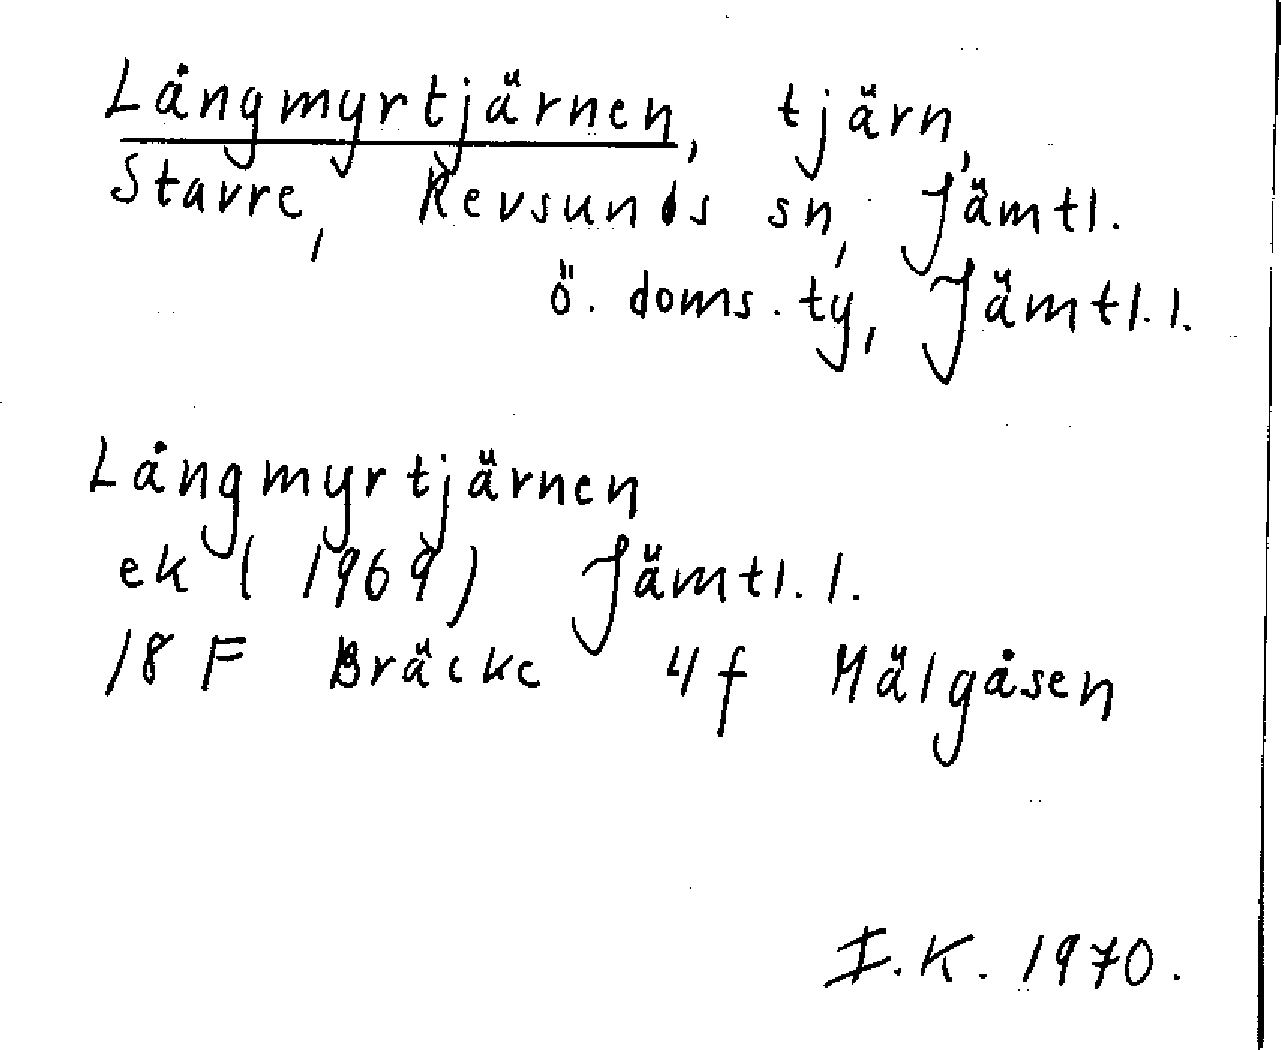 Långmyrtjärnen, tjärn,
Stavre, Revsunds sn, Jämtl.
ö. doms. ty, Jämtl. l.
Långmyrtjärnen
ek (1969) Jämtl. l.
18 F Bräcke 4f Mälgåsen
I.K. 1970.